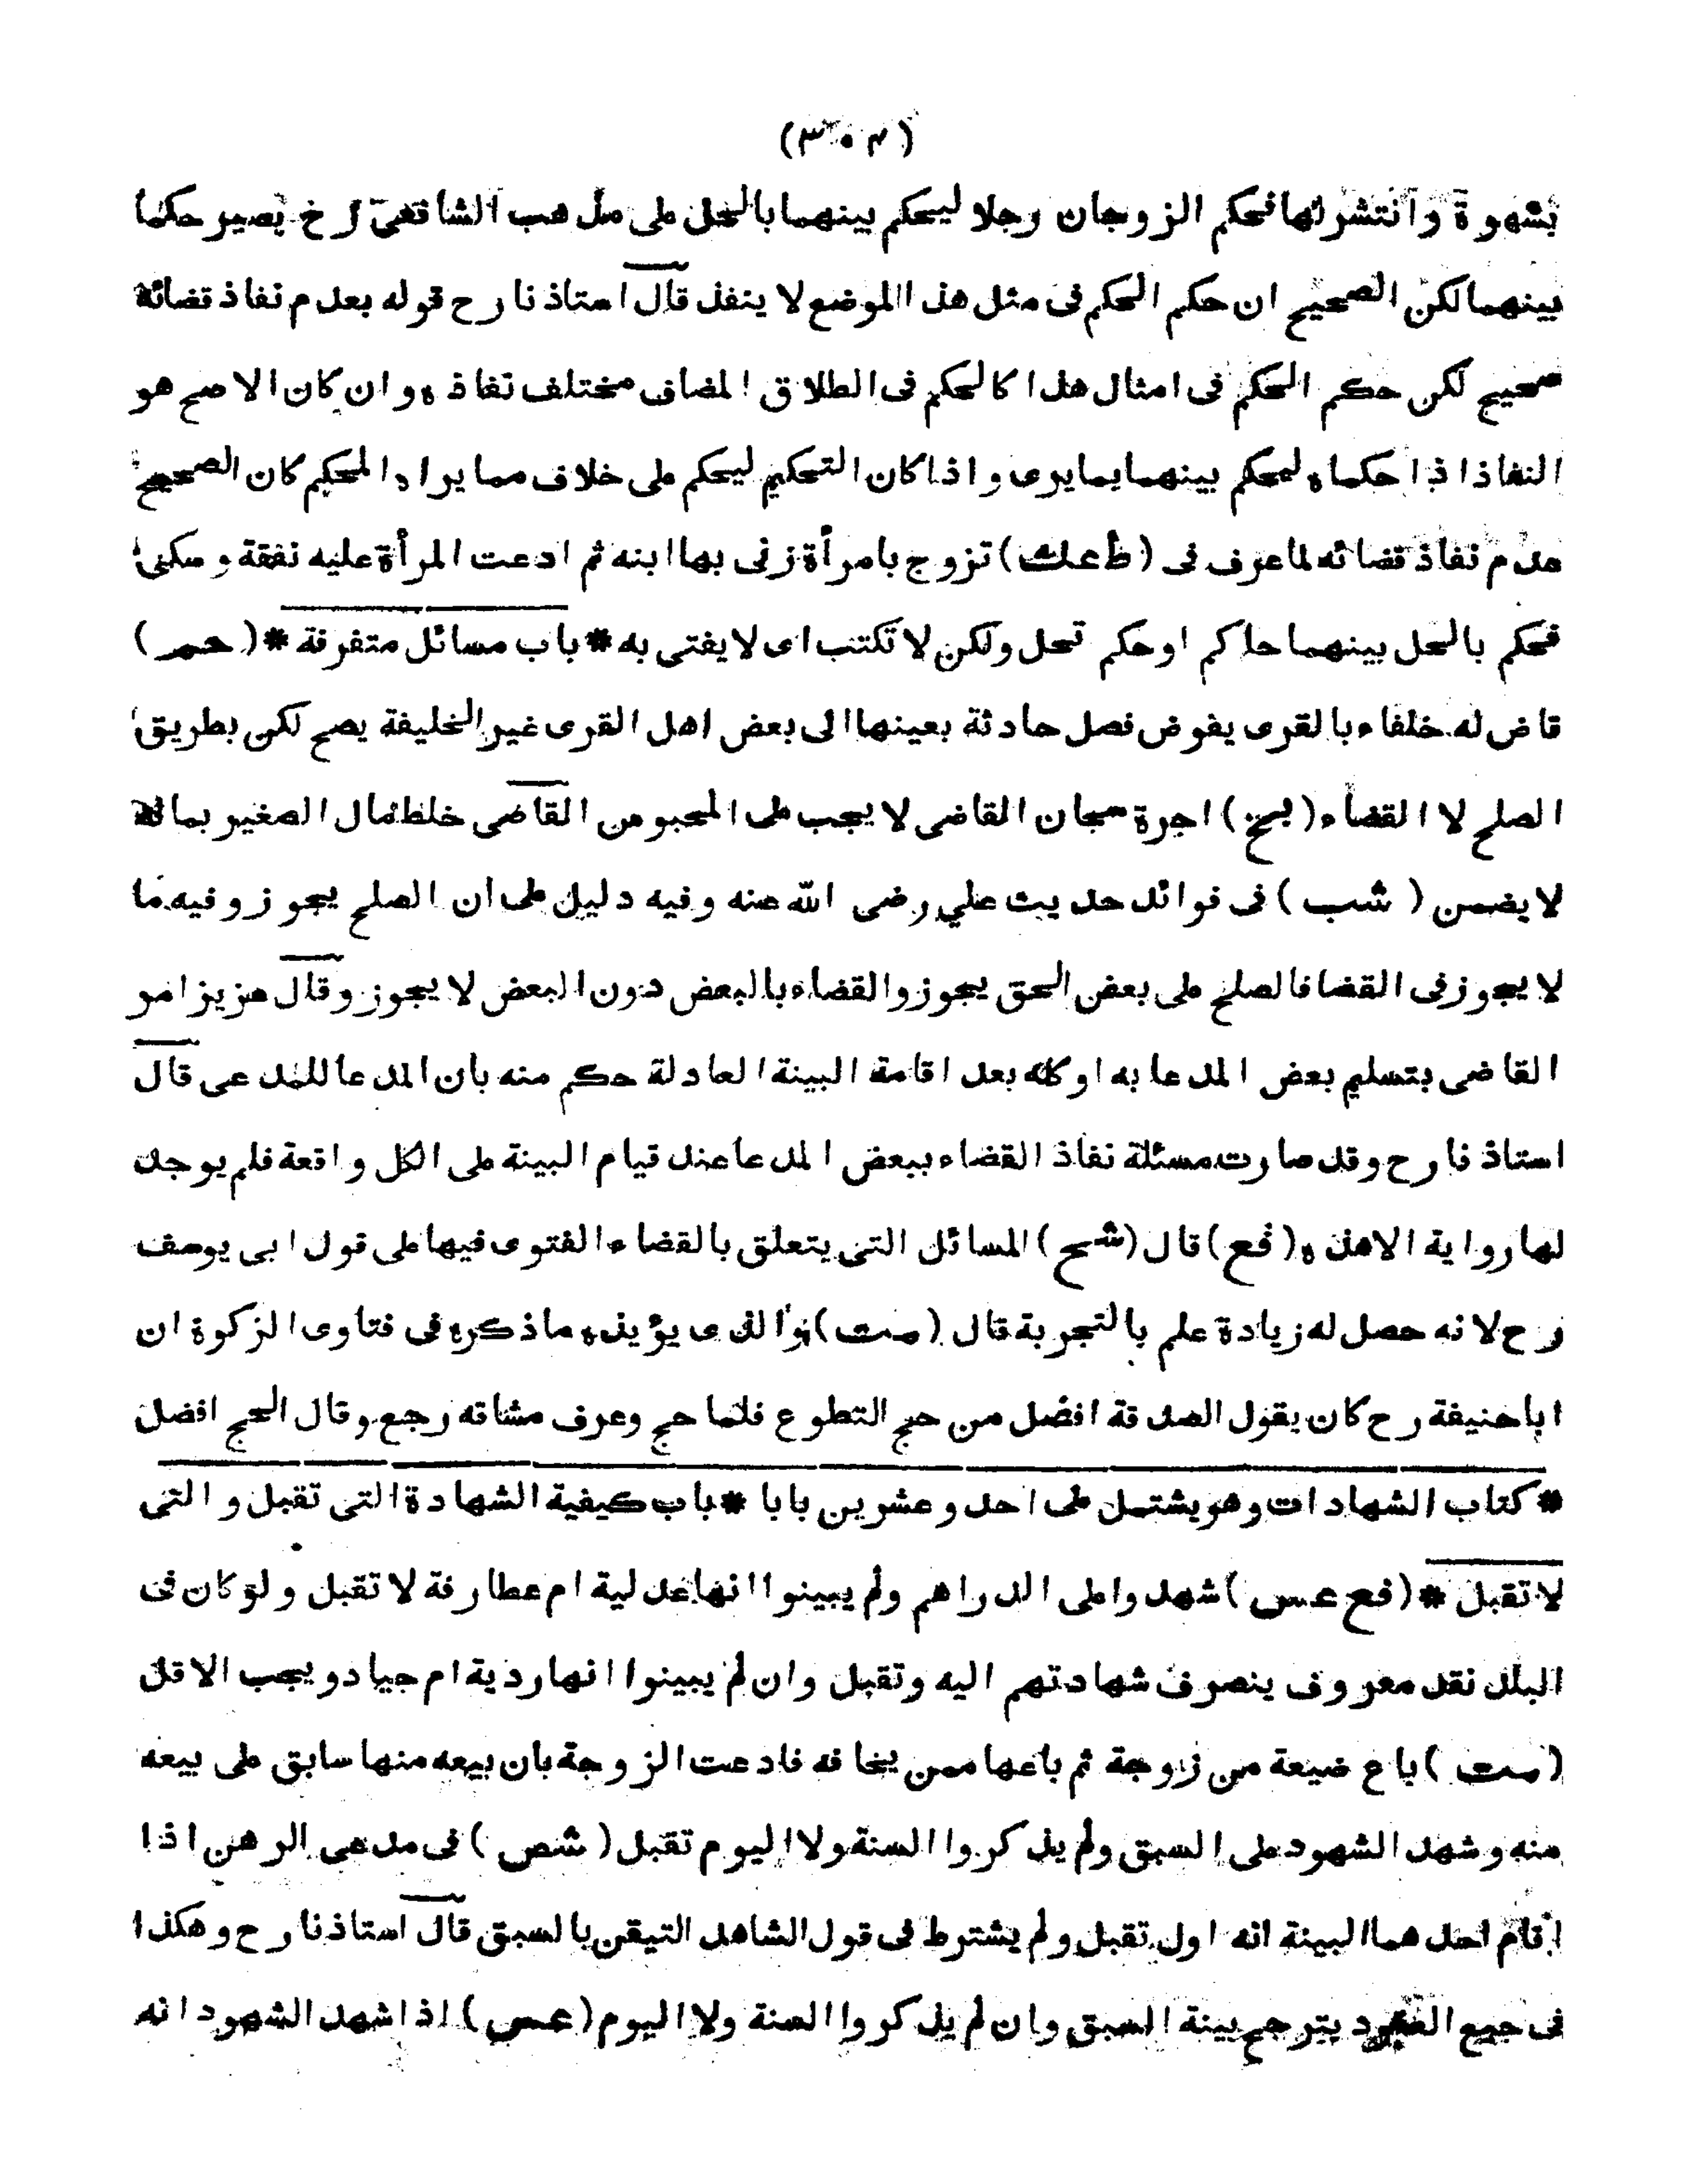 (٣٠٤)
بشهوة وانتشر لها فحكم الزوجان رجلا ليحكم بينهما بالحل على مذهب الشافعى رح يصير حكما
بينهما لكن الصحيح ان حكم الحكم فى مثل هذا الموضع لا ينفذ قال استاذنا رح قوله بعدم نفاذ قضائه
صحيح لكن حكم الحكم فى امثال هذا كالحكم فى الطلاق المضاف مختلف نفاذه وان كان الاصح هو
النفاذ اذا حكماه ليحكم بينهما بما يرى واذا كان التحكيم ليحكم على خلاف مما يراه المحكم كان الصحيح
عدم نفاذ قضائه لما عرف فى (ظ عك) تزوج بامرأة زنى بها ابنه ثم ادعت المرأة عليه نفقة وسكنى
فحكم بالحل بينهما حاكم او حكم تحل ولكن لا تكتب اى لا يفتى به * باب مسائل متفرقة * (حمر)
قاض له خلفاء بالقرى يفوض فصل حادثة بعينها الى بعض اهل القرى غير الخليفة يصح لكن بطريق
الصلح لا القضاء (بخ) اجرة سجان القاضى لا يجب على المحبوس القاضى خلط مال الصغير بماله
لا يضمن (شب) فى فوائد حديث علي رضى الله عنه وفيه دليل على ان الصلح يجوز وفيه ما
لا يجوز فى القضا فالصلح على بعض الحق يجوز والقضاء بالبعض دون البعض لا يجوز وقال عزيز امر
القاضى بتسليم بعض المدعا به او كله بعد اقامة البينة العادلة حكم منه بان المدعا للمدعى قال
استاذنا رح وقد صارت مسئلة نفاذ القضاء ببعض المدعا عند قيام البينة على الكل واقعة فلم يوجد
لها رواية الا هذه (فع) قال (شح) المسائل التى يتعلق بالقضاء الفتوى فيها على قول ابى يوسف
رح لانه حصل له زيادة علم بالتجربة قال (مت) والذى يؤيده ما ذكره فى فتاوى الزكوة ان
ابا حنيفة رح كان يقول الصدقة افضل من حج التطوع فلما حج وعرف مشاقه رجع وقال الحج افضل
* كتاب الشهادات وهو يشتمل على احد وعشرين بابا * باب كيفية الشهادة التى تقبل والتى
لا تقبل * (فع عس) شهدوا على الدراهم ولم يبينوا انها عدلية ام عطارفة لا تقبل ولو كان فى
البلد نقد معروف ينصرف شهادتهم اليه وتقبل وان لم يبينوا انها ردية ام جياد ويجب الاقل
(مت) باع ضيعة من زوجة ثم باعها ممن يخافه فادعت الزوجة بان بيعه منها سابق على بيعه
منه وشهد الشهود على السبق ولم يذكروا السنة ولا اليوم تقبل (شص) فى مدعى الرهن اذا
اقام احدهما البينة انه اول تقبل ولم يشترط فى قول الشاهد التيقن بالسبق قال استاذنا رح وهكذا
فى جميع العقود يترجح بينة السبق وان لم يذكروا السنة ولا اليوم (عس) اذا شهد الشهود انه